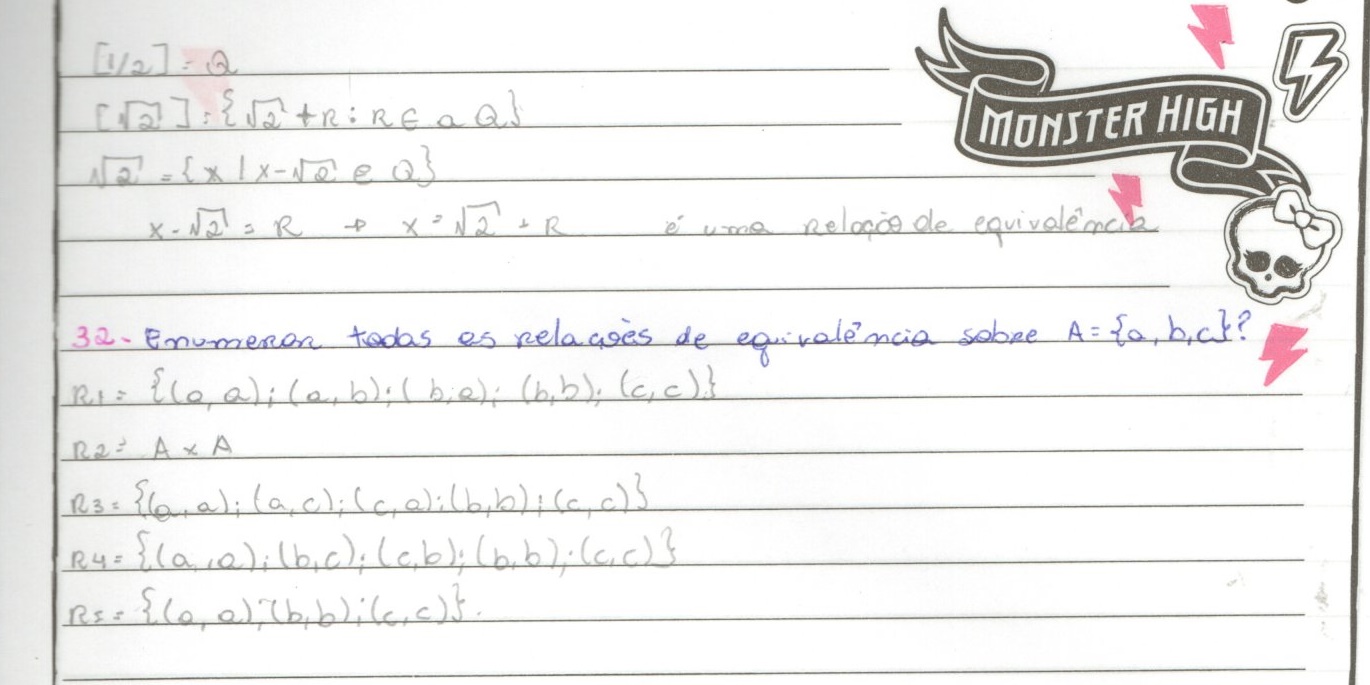 [1/2] = Q
[√2] = {√2 + R : R ∈ a Q}
MONSTER HIGH
√2 = {x | x - √2 e Q}
x - √2 = R → x = √2 + R é uma relação de equivalência
32- Enumerar todas as relações de equivalência sobre A = {a, b, c}?
R1 = {(a, a); (a, b); (b, a); (b, b); (c, c)}
R2 = A x A
R3 = {(a, a); (a, c); (c, a); (b, b); (c, c)}
R4 = {(a, a); (b, c); (c, b); (b, b); (c, c)}
R5 = {(a, a); (b, b); (c, c)}.